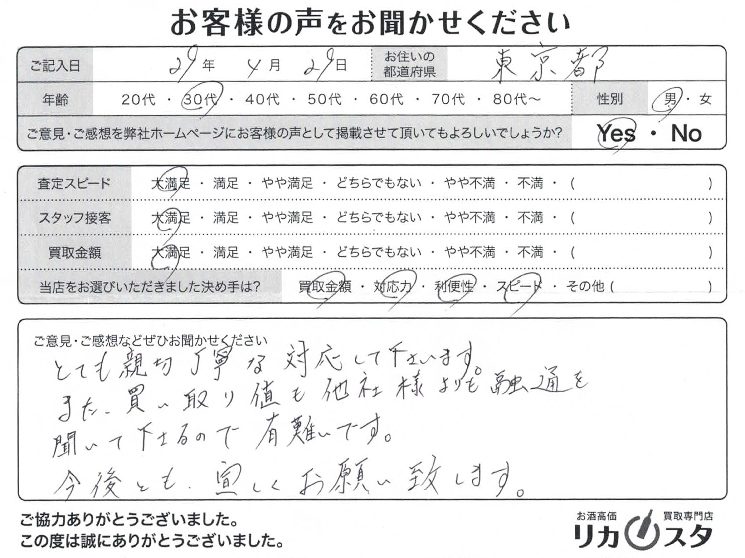 お客様の声をお聞かせください
ご記入日 29年 4月 29日 お住いの都道府県 東京都
年齢 20代・30代・40代・50代・60代・70代・80代～ 性別 男・女
ご意見・ご感想を弊社ホームページにお客様の声として掲載させて頂いてもよろしいでしょうか? Yes・No
査定スピード 大満足・満足・やや満足・どちらでもない・やや不満・不満・( )
スタッフ接客 大満足・満足・やや満足・どちらでもない・やや不満・不満・( )
買取金額 大満足・満足・やや満足・どちらでもない・やや不満・不満・( )
当店をお選びいただきました決め手は? 買取金額・対応力・利便性・スピード・その他( )
ご意見・ご感想などぜひお聞かせください
とても親切丁寧な対応して下さいます。
また、買い取り値も他社様よりも融通を
聞いて下さるので有難いです。
今後とも、宜しくお願い致します。
ご協力ありがとうございました。
この度は誠にありがとうございました。
お酒高価 買取専門店
リカスタ